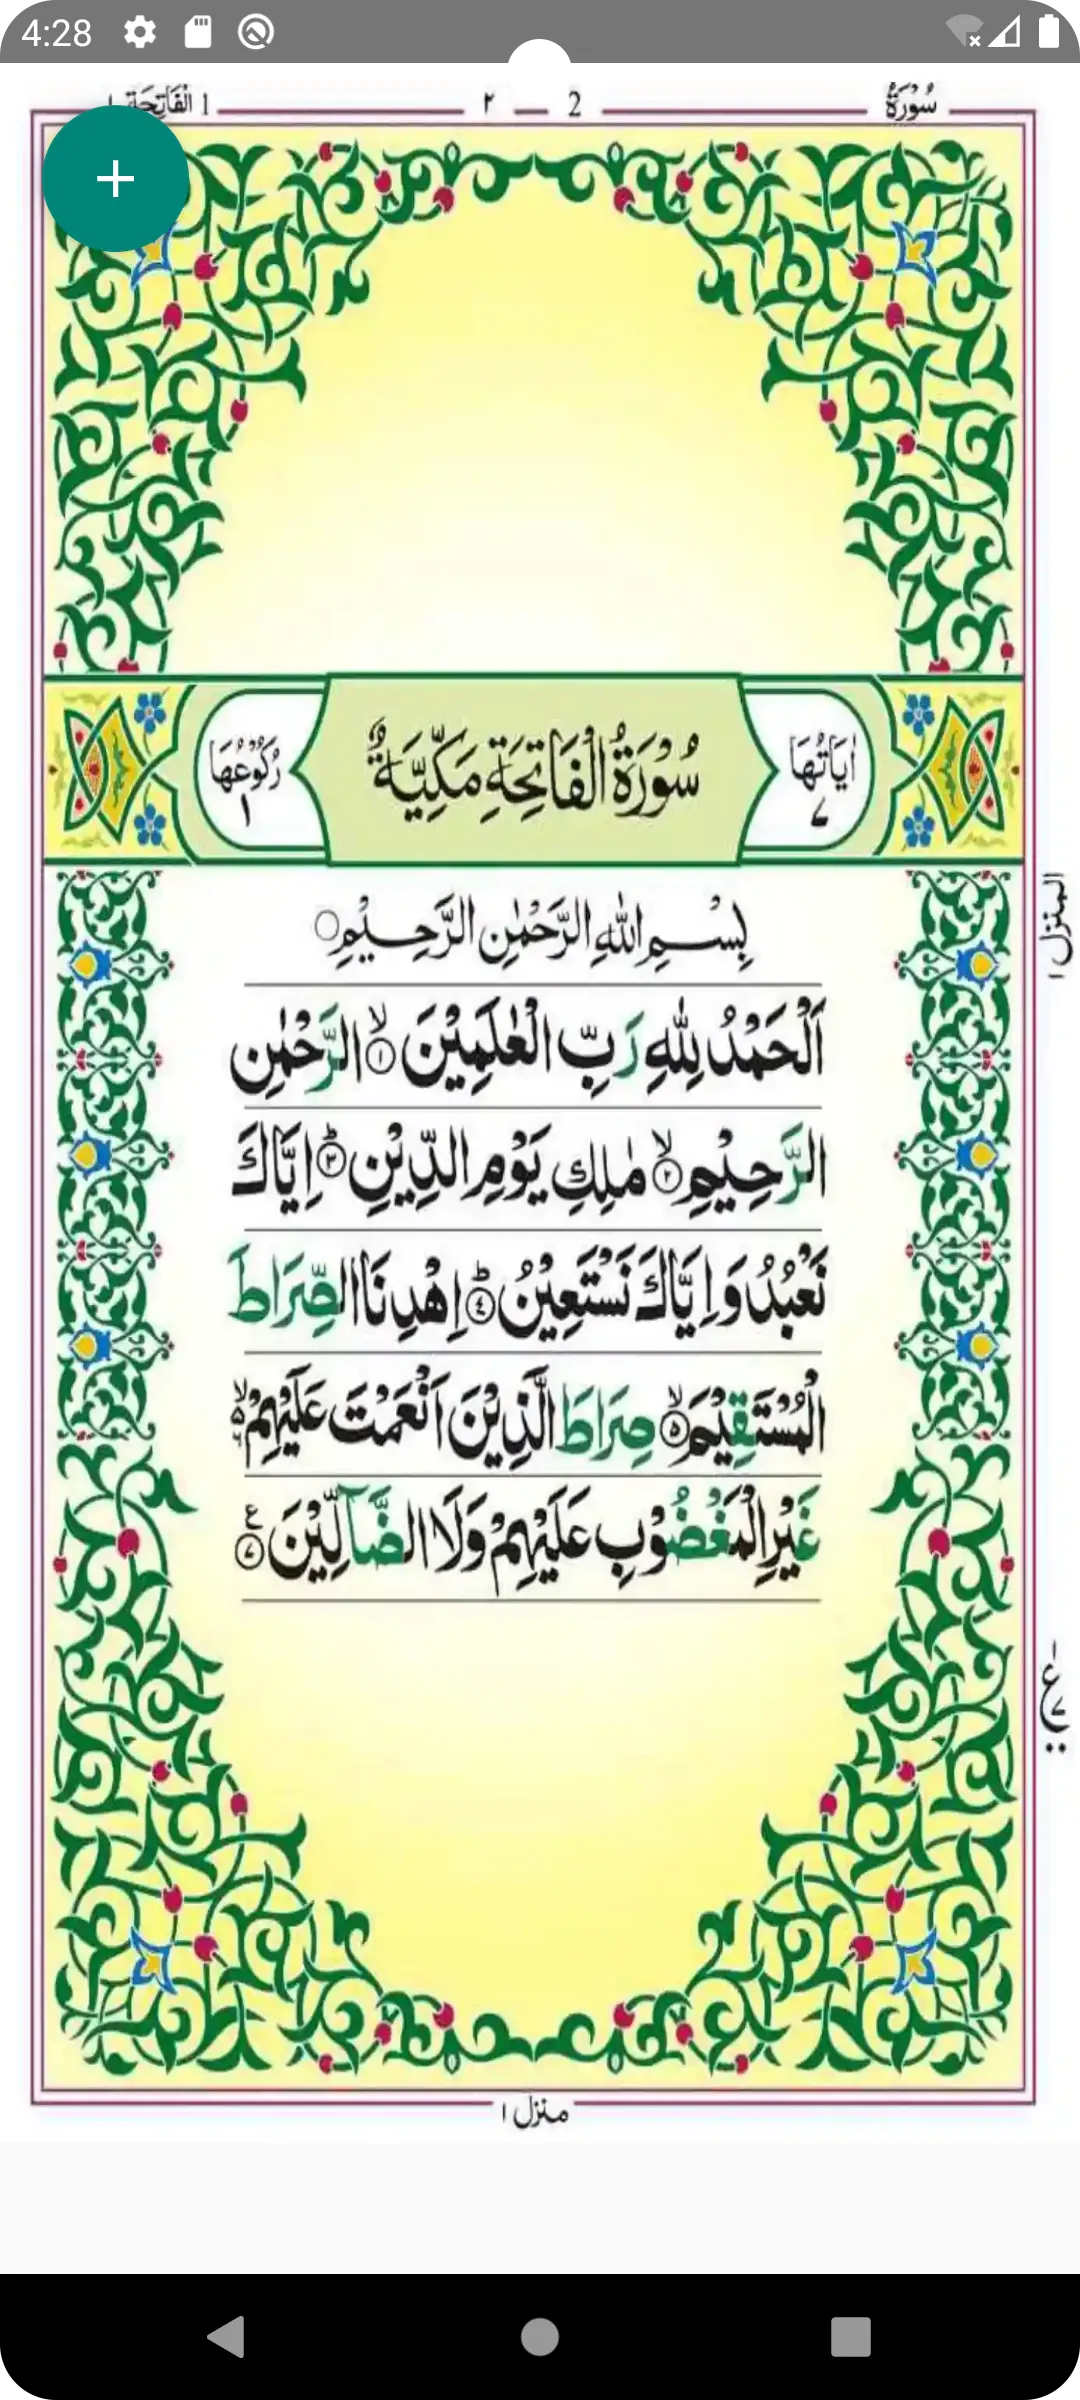 4:28
سُوْرَةُ 2 — ٢ 1 اَلْفَاتِحَة ١
اٰيَاتُهَا ٧ سُوْرَةُ الْفَاتِحَةِ مَكِّيَّةٌ رُكُوْعُهَا ١
بِسْمِ اللّٰهِ الرَّحْمٰنِ الرَّحِيْمِ
اَلْحَمْدُ لِلّٰهِ رَبِّ الْعٰلَمِيْنَ ۙ١ الرَّحْمٰنِ
الرَّحِيْمِ ۙ٢ مٰلِكِ يَوْمِ الدِّيْنِ ؕ٣ اِيَّاكَ
نَعْبُدُ وَ اِيَّاكَ نَسْتَعِيْنُ ؕ٤ اِهْدِنَا الصِّرَاطَ
الْمُسْتَقِيْمَ ۙ٥ صِرَاطَ الَّذِيْنَ اَنْعَمْتَ عَلَيْهِمْ ۙ۬
غَيْرِ الْمَغْضُوْبِ عَلَيْهِمْ وَلَا الضَّآلِّيْنَ ٧ ع
المنزل ١
ع ٧
منزل ١